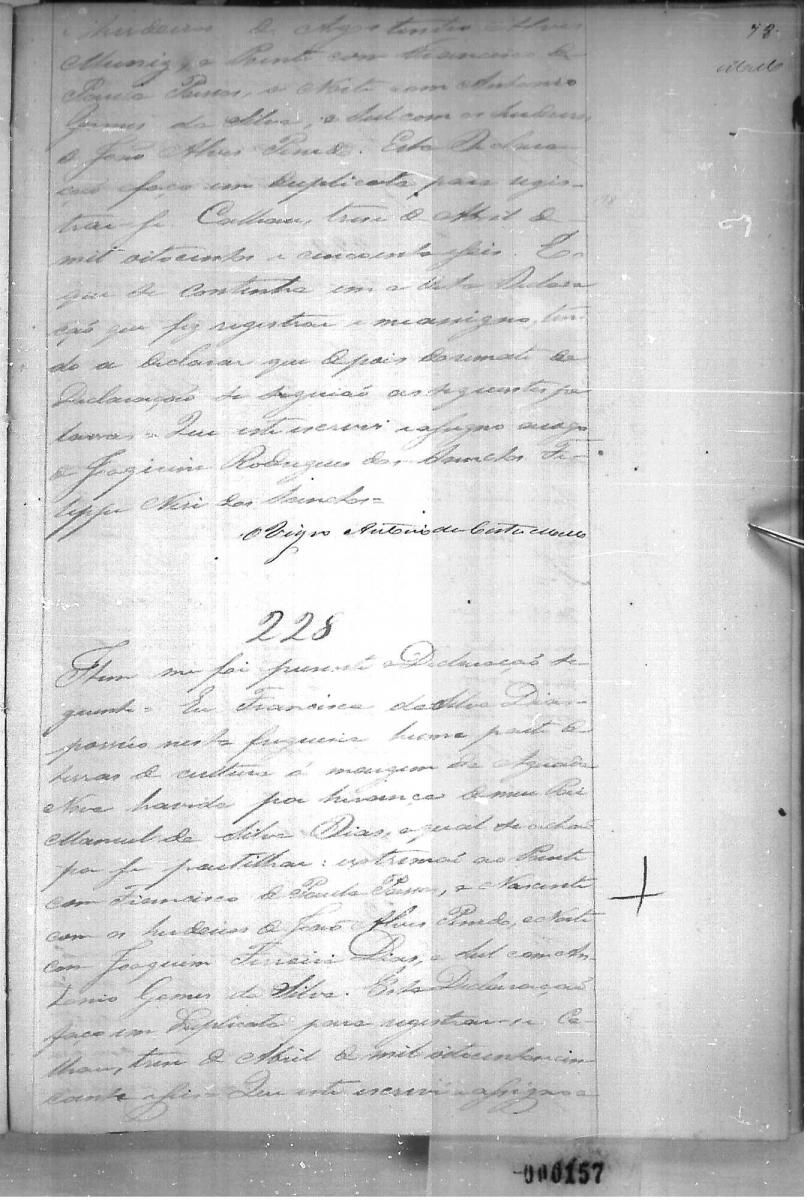 73
Mello
herdeiros de Agostinho Alves
Muniz, o Poente com Francisco de
Paula Passos, o Norte com Antonio
Gomes da Silva, o Sul com os herdeiros
de João Alves Penedo. Esta Declara
ção faço em duplicata para regis-
trar-se. Calhau, treze de Abril de
mil oitocentos e cincoenta e seis. E o
que se continha em a dita Declara
ção que fiz registrar e me assigno, ten-
do a declarar que depois do remate da
Declaração se seguião as seguintes pa
lavras = Que este escrevi e assigno a rogo
de Joaquim Rodrigues dos Fi-
lippe Neri dos Santos =
O Vigrº Antonio da Costa Mello
228
Item me foi presente a Declaração se-
guinte = Eu Francisca da Silva Dias
possúo nesta freguesia huma parte de
terras de cultura á margem da Aguada
Nova havida por herança de meu Pai
Manuel da Silva Dias, a qual se acha
por se partilhar: extrema ao Poente
com Francisco de Paula Passos, o Nascente
com os herdeiros de João Alves Penedo, o Norte
com Joaquim Ferreira Dias, o Sul com An-
tonio Gomes da Silva. Esta Declaração
faço em duplicata para registrar-se. Ca-
lhau, treze de Abril de mil oitocentos e cin
coenta e seis = Que este escrevi e assigno a
000157